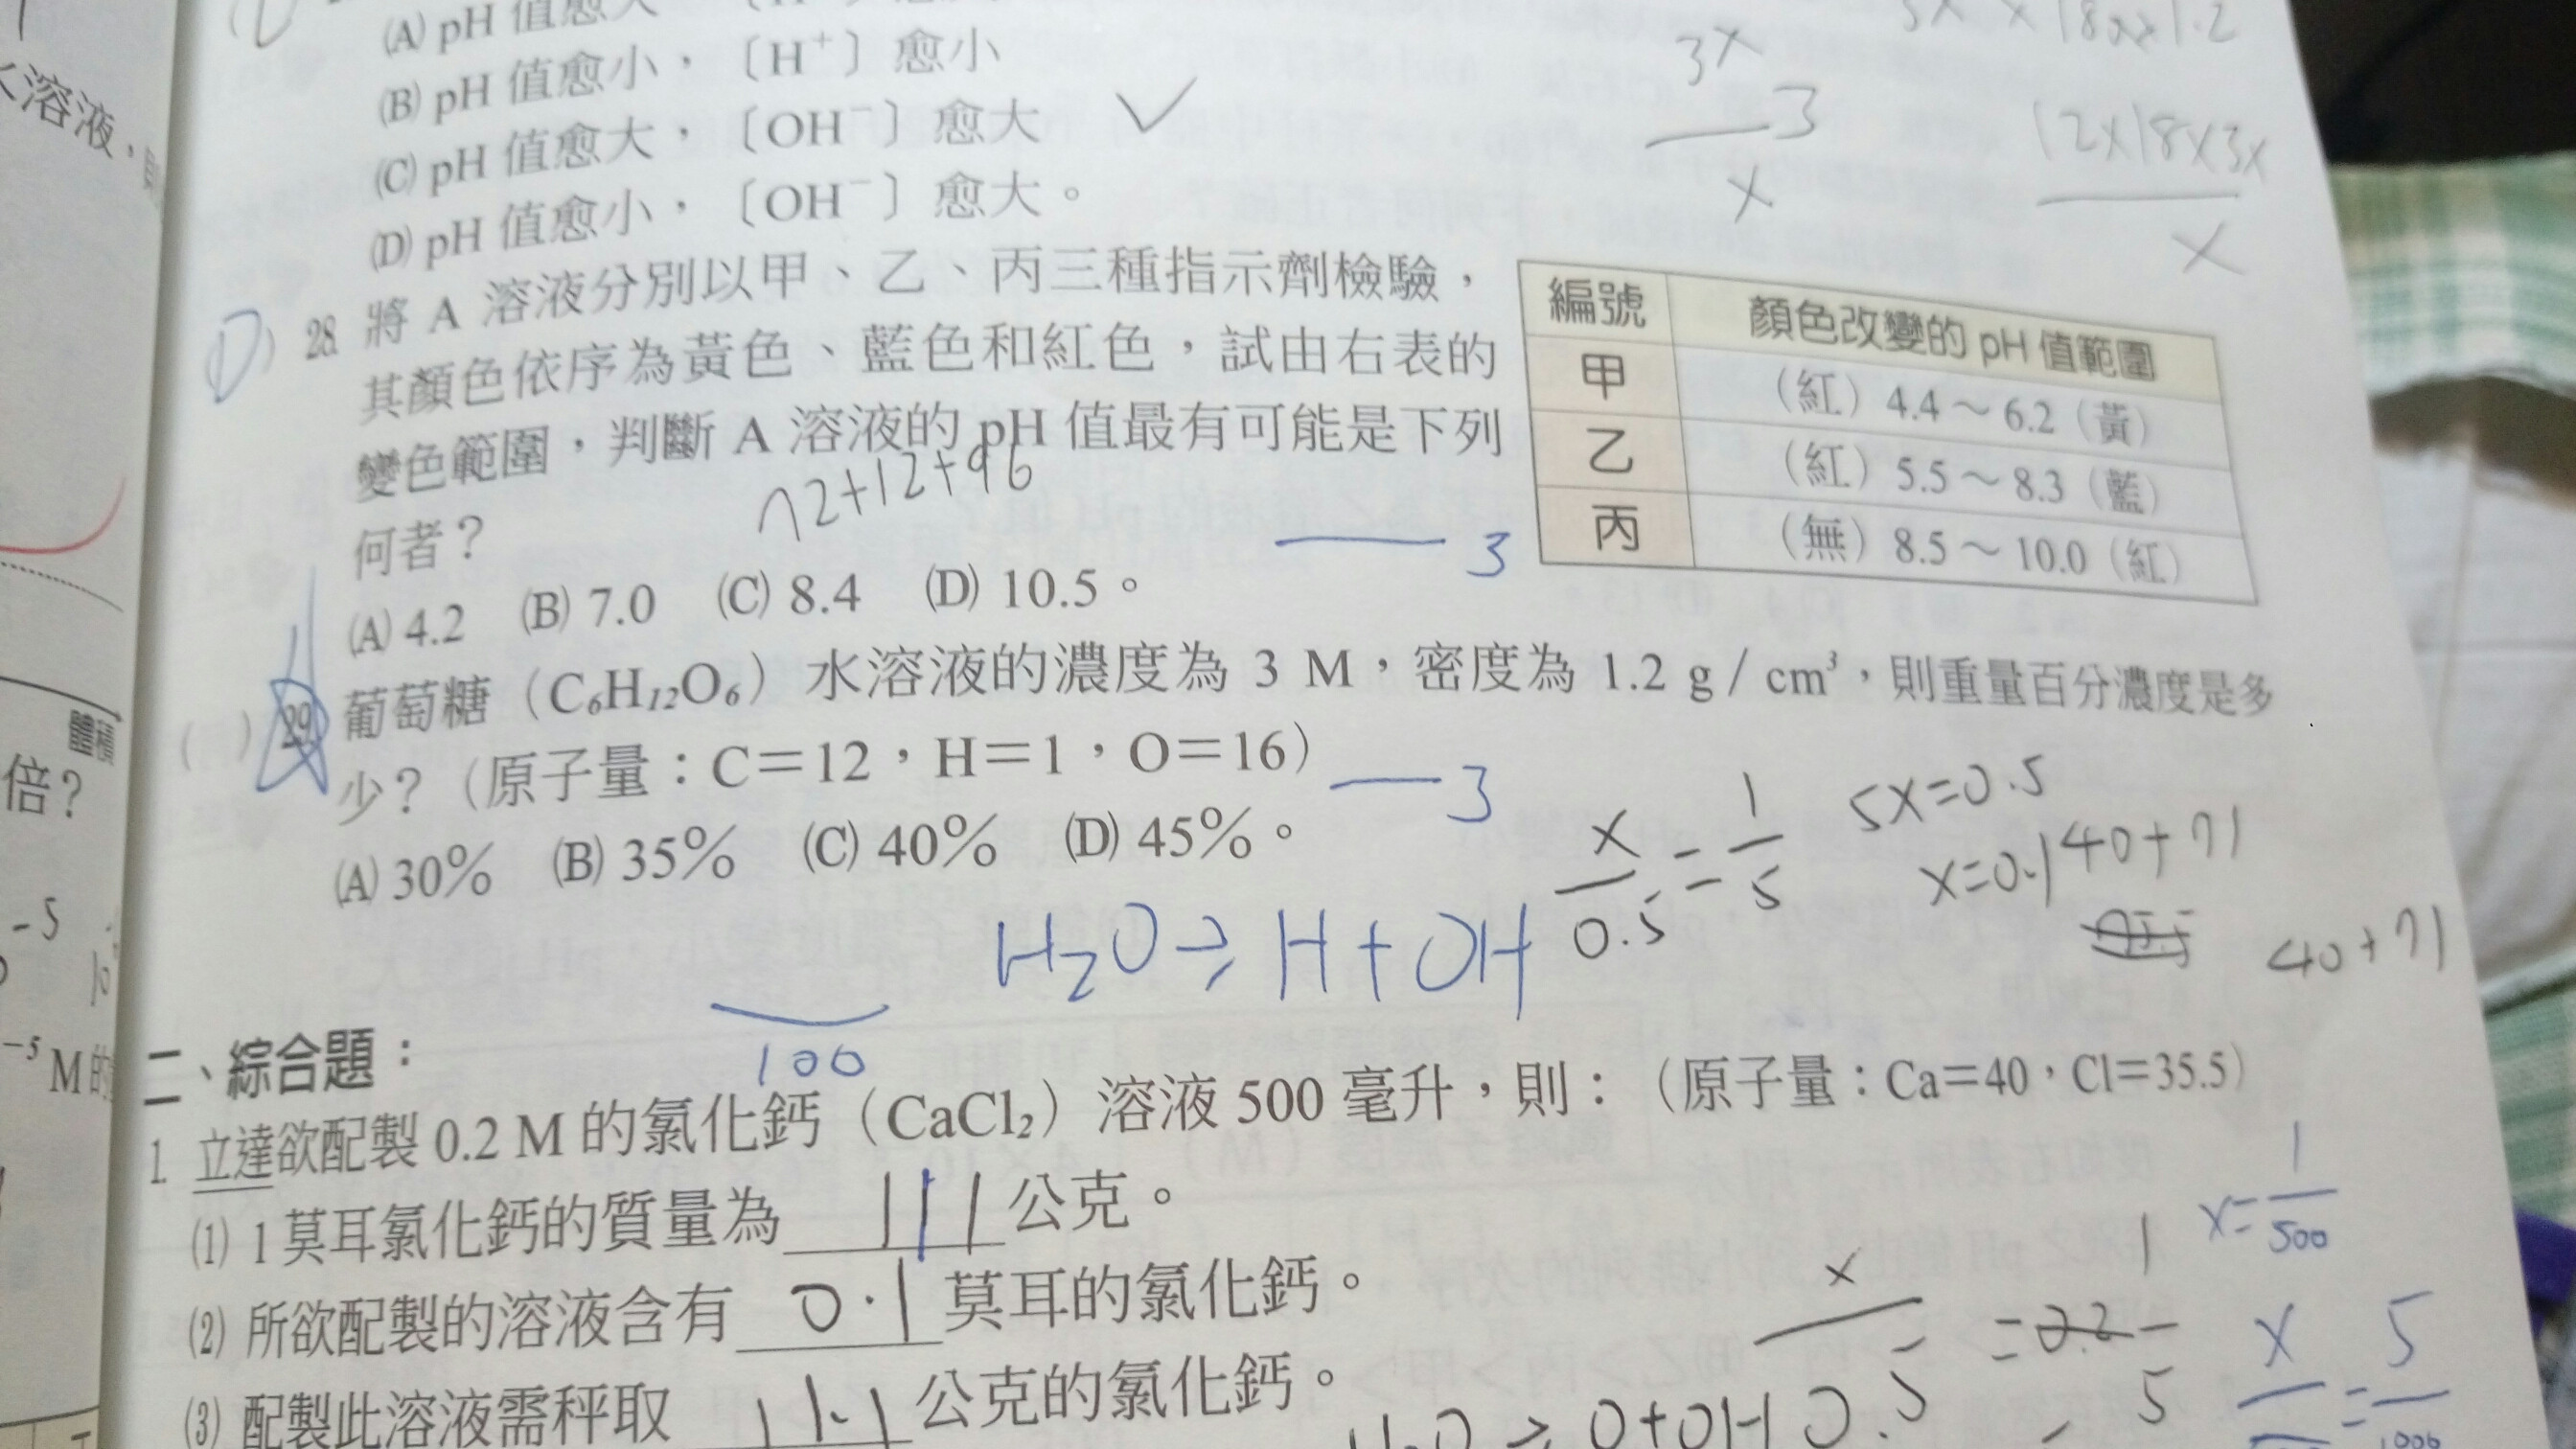 (A) pH 值愈大
(B) pH 值愈小，〔H⁺〕愈小
(C) pH 值愈大，〔OH⁻〕愈大
(D) pH 值愈小，〔OH⁻〕愈大。
水溶液，則
3x
3
x
12x18x3x
x
D
28. 將 A 溶液分別以甲、乙、丙三種指示劑檢驗，
其顏色依序為黃色、藍色和紅色，試由右表的
變色範圍，判斷 A 溶液的 pH 值最有可能是下列
何者？
72+12+96
3
(A) 4.2 (B) 7.0 (C) 8.4 (D) 10.5。
編號 顏色改變的 pH 值範圍
甲 （紅）4.4～6.2（黃）
乙 （紅）5.5～8.3（藍）
丙 （無）8.5～10.0（紅）
( ) 29. 葡萄糖（C₆H₁₂O₆）水溶液的濃度為 3 M，密度為 1.2 g / cm³，則重量百分濃度是多
少？（原子量：C＝12，H＝1，O＝16）
3
(A) 30％ (B) 35％ (C) 40％ (D) 45％。
x/0.5 = 1/5
5x=0.5
x=0.1
40+71
40+71
H₂O ⇌ H + OH
100
體積
倍？
-5
⁻⁵ M 的
二、綜合題：
1. 立達欲配製 0.2 M 的氯化鈣（CaCl₂）溶液 500 毫升，則：（原子量：Ca＝40，Cl＝35.5）
(1) 1 莫耳氯化鈣的質量為 111 公克。
(2) 所欲配製的溶液含有 0.1 莫耳的氯化鈣。
(3) 配製此溶液需秤取 11.1 公克的氯化鈣。
x=1/500
x
0.5
1
5
x
5